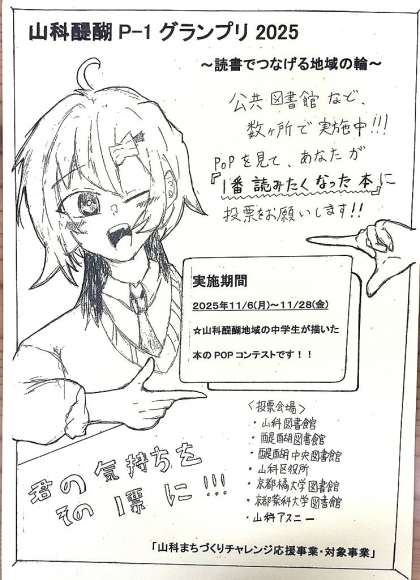 山科醍醐 P-1 グランプリ 2025
～読書でつなげる地域の輪～
公共図書館など、
数ヶ所で実施中!!!
POPを見て、あなたが
『1番読みたくなった本』に
投票をお願いします!!
実施期間
2025年11/6(月)～11/28(金)
☆山科醍醐地域の中学生が描いた
本のPOPコンテストです！！
〈投票会場〉
・山科図書館
・醍醐図書館
・醍醐中央図書館
・山科区役所
・京都橘大学図書館
・京都薬科大学図書館
・山科アスニー
君の気持ちを
その1票に!!!
「山科まちづくりチャレンジ応援事業・対象事業」